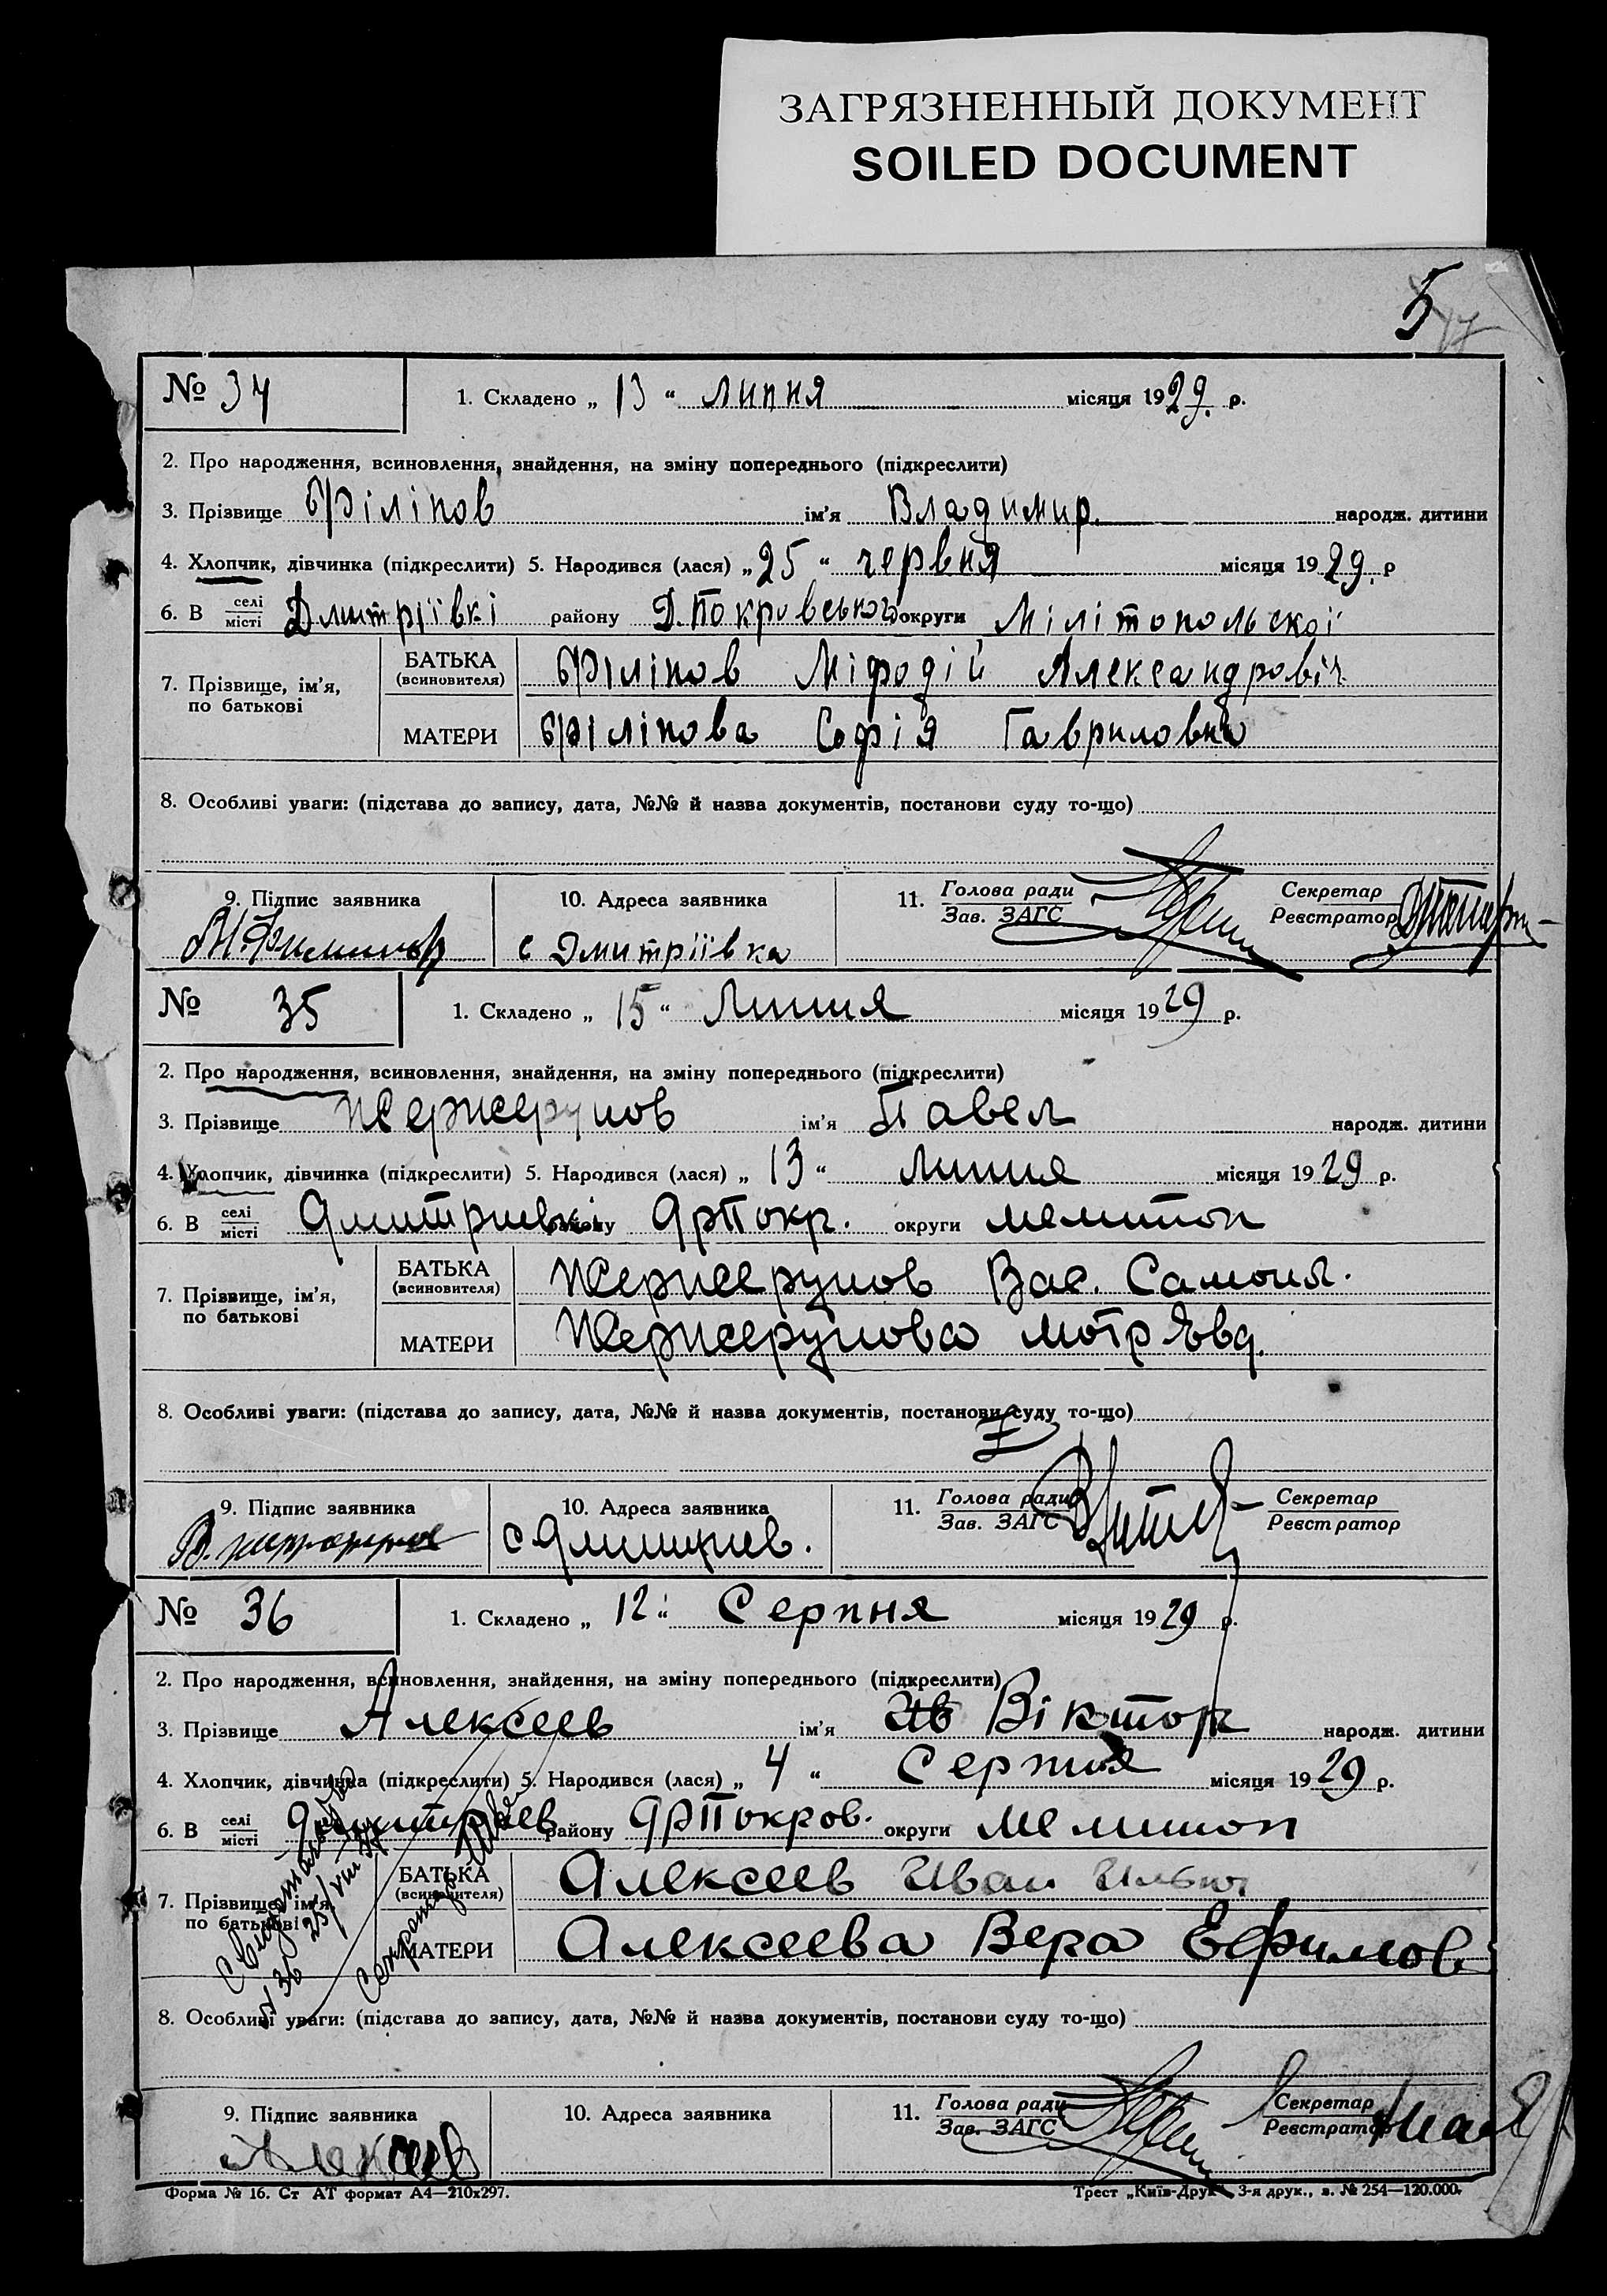 ЗАГРЯЗНЕННЫЙ ДОКУМЕНТ
SOILED DOCUMENT
5
№ 34
1. Складено „ 13 “ липня місяця 1929. р.
2. Про народження, всиновлення, знайдення, на зміну попереднього (підкреслити)
3. Прізвище Філіпов ім’я Владимир. народж. дитини
4. Хлопчик, дівчинка (підкреслити) 5. Народився (лася) „ 25 “ червня місяця 1929. р
6. В селі місті Дмитріївкі району Д. Покровського округи Мілітопольскої
7. Прізвище, ім’я, по батькові
БАТЬКА (всиновителя) Філіпов Міфодій Александровіч
МАТЕРИ Філіпова Софія Гавриловна
8. Особливі уваги: (підстава до запису, дата, №№ й назва документів, постанови суду то-що)
9. Підпис заявника
10. Адреса заявника
11. Голова ради Зав. ЗАГС
Секретар Реєстратор
с Дмитріївка
№ 35
1. Складено „ 15 “ Липня місяця 1929 р.
2. Про народження, всиновлення, знайдення, на зміну попереднього (підкреслити)
3. Прізвище ім’я Павел народж. дитини
4. Хлопчик, дівчинка (підкреслити) 5. Народився (лася) „ 13 “ Липня місяця 1929 р.
6. В селі місті Дмитриевкі району ДрПокр. округи Мелитоп
7. Прізвище, ім’я, по батькові
БАТЬКА (всиновителя) Вас. Самоил.
МАТЕРИ Мотр Евд.
8. Особливі уваги: (підстава до запису, дата, №№ й назва документів, постанови суду то-що)
9. Підпис заявника
10. Адреса заявника
11. Голова ради Зав. ЗАГС
Секретар Реєстратор
с Дмитриев.
№ 36
1. Складено „ 12 “ Серпня місяця 1929 р.
2. Про народження, всиновлення, знайдення, на зміну попереднього (підкреслити)
3. Прізвище Алексеев ім’я Ив Віктор народж. дитини
4. Хлопчик, дівчинка (підкреслити) 5. Народився (лася) „ 4 “ Серпня місяця 1929 р.
6. В селі місті Дмитриев району ДрПокров. округи Мелитоп
7. Прізвище, ім’я, по батькові
БАТЬКА (всиновителя) Алексеев Иван Ильич
МАТЕРИ Алексеева Вера Ефимов
№ 36 25/VIII
8. Особливі уваги: (підстава до запису, дата, №№ й назва документів, постанови суду то-що)
9. Підпис заявника
10. Адреса заявника
11. Голова ради Зав. ЗАГС
Секретар Реєстратор
Алексеев
Форма № 16. Ст АТ формат А4—210х297.
Трест „Київ-Друк“, 3-я друк., з. № 254—120.000.